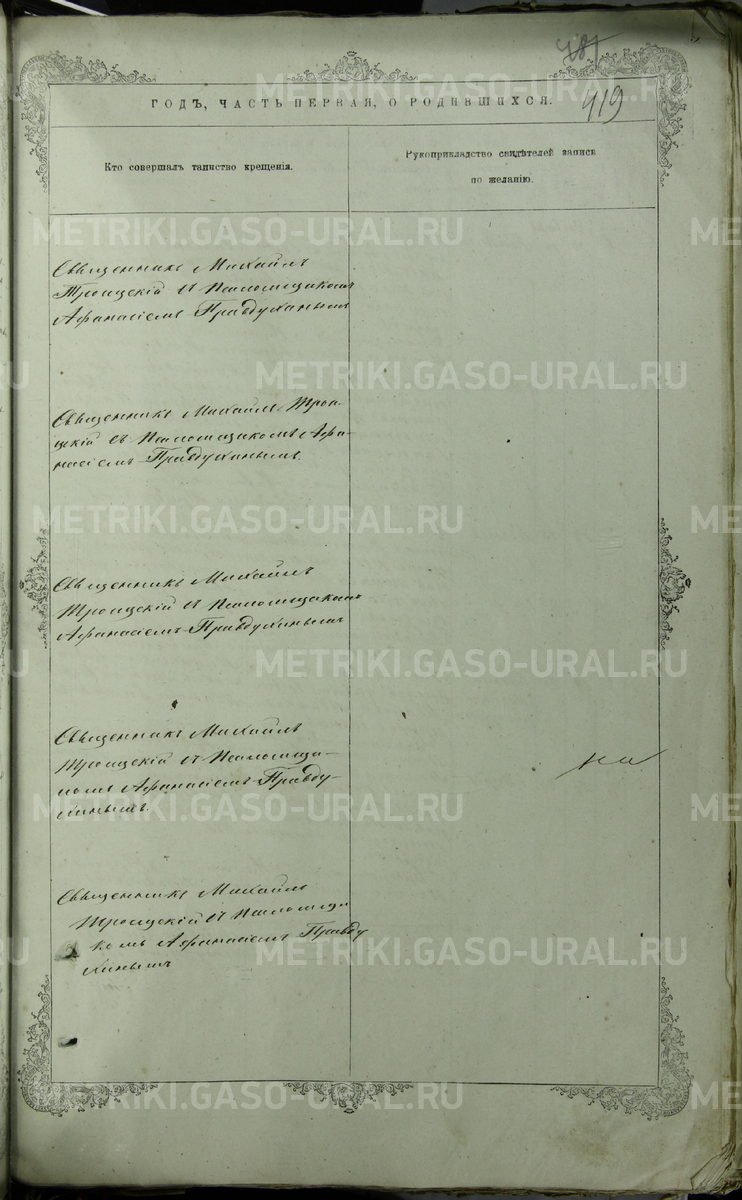 419
ГОДЪ, ЧАСТЬ ПЕРВАЯ, О РОДИВШИХСЯ.
Кто совершалъ таинство крещенія.
Рукоприкладство свидѣтелей записи
по желанію.
Священникъ Михаилъ
Троицскій съ Псаломщикомъ
Афанасіемъ Правдухинымъ
Священникъ Михаилъ Трои-
цскій съ Псаломщикомъ Афа-
насіемъ Правдухинымъ.
Священникъ Михаилъ
Троицскій съ Псаломщикомъ
Афанасіемъ Правдухинымъ
Священникъ Михаилъ
Троицскій съ Псаломщи-
комъ Афанасіемъ Правду-
хинымъ.
Священникъ Михаилъ
Троицскій съ Псаломщи
комъ Афанасіемъ Правду
хинымъ
METRIKI.GASO-URAL.RU